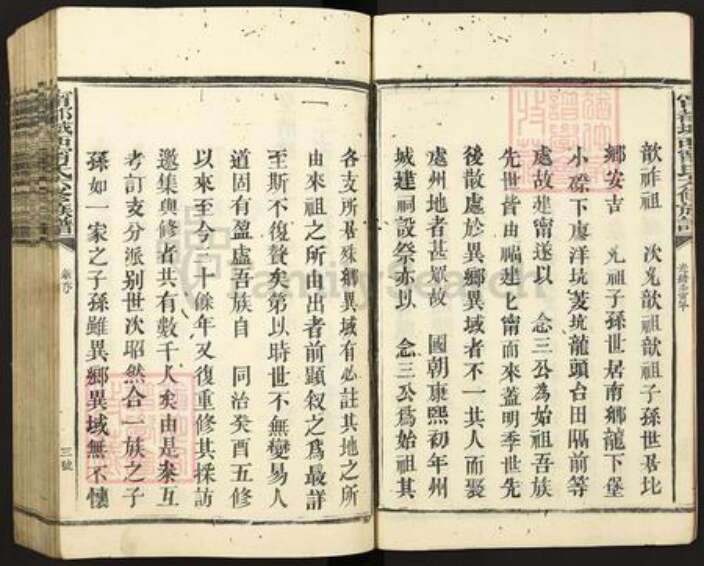 歆祚祖　次光歆祖歆祖子孫世居比
鄉安吉　光祖子孫世居南鄉龍下堡
小磜下南洋坑菱坑龍頭台田隔前等
處故建甯遂以　念三公為始祖吾族
先世皆由福建七甯而來蓋明季世先
後散處於異鄉異域者不一其人而聚
處州地者甚眾故　國朝康熙初年州
城建祠設祭亦以　念三公為始祖其
各支所居殊鄉異域有必註其地之所
由來祖之所由出者前顯叙之為最詳
至斯不復贊矣第以時世不無變易人
道固有盈虛吾族自　同治癸酉五修
以來至今三十餘年又復重修其採訪
邀集與修者共有數千人矣由是來互
考訂支分派别世次昭然合一族之子
孫如一家之子孫雖異鄉異域無不懷
三號
FamilySearch